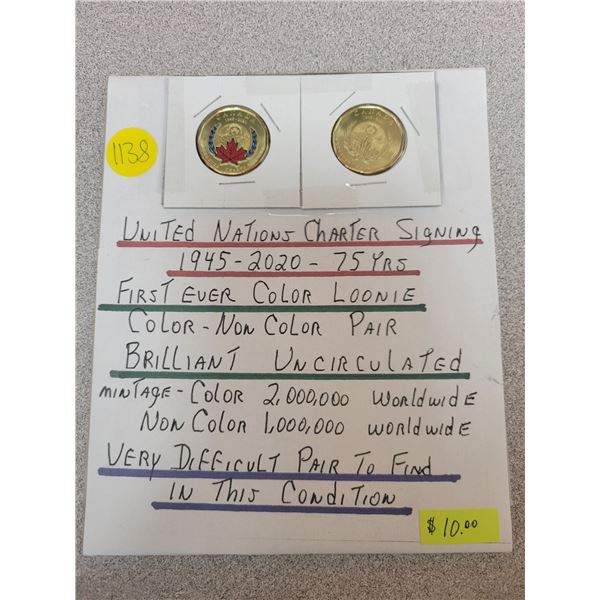 CANADA
CANADA
1138
UNITED NATIONS CHARTER SIGNING
1945-2020-75 YRS
FIRST EVER COLOR LOONIE
COLOR-NON COLOR PAIR
BRILLIANT UNCIRCULATED
MINTAGE-COLOR 2,000,000 WORLDWIDE
NON COLOR 1,000,000 WORLDWIDE
VERY DIFFICULT PAIR TO FIND
IN THIS CONDITION
$10.00